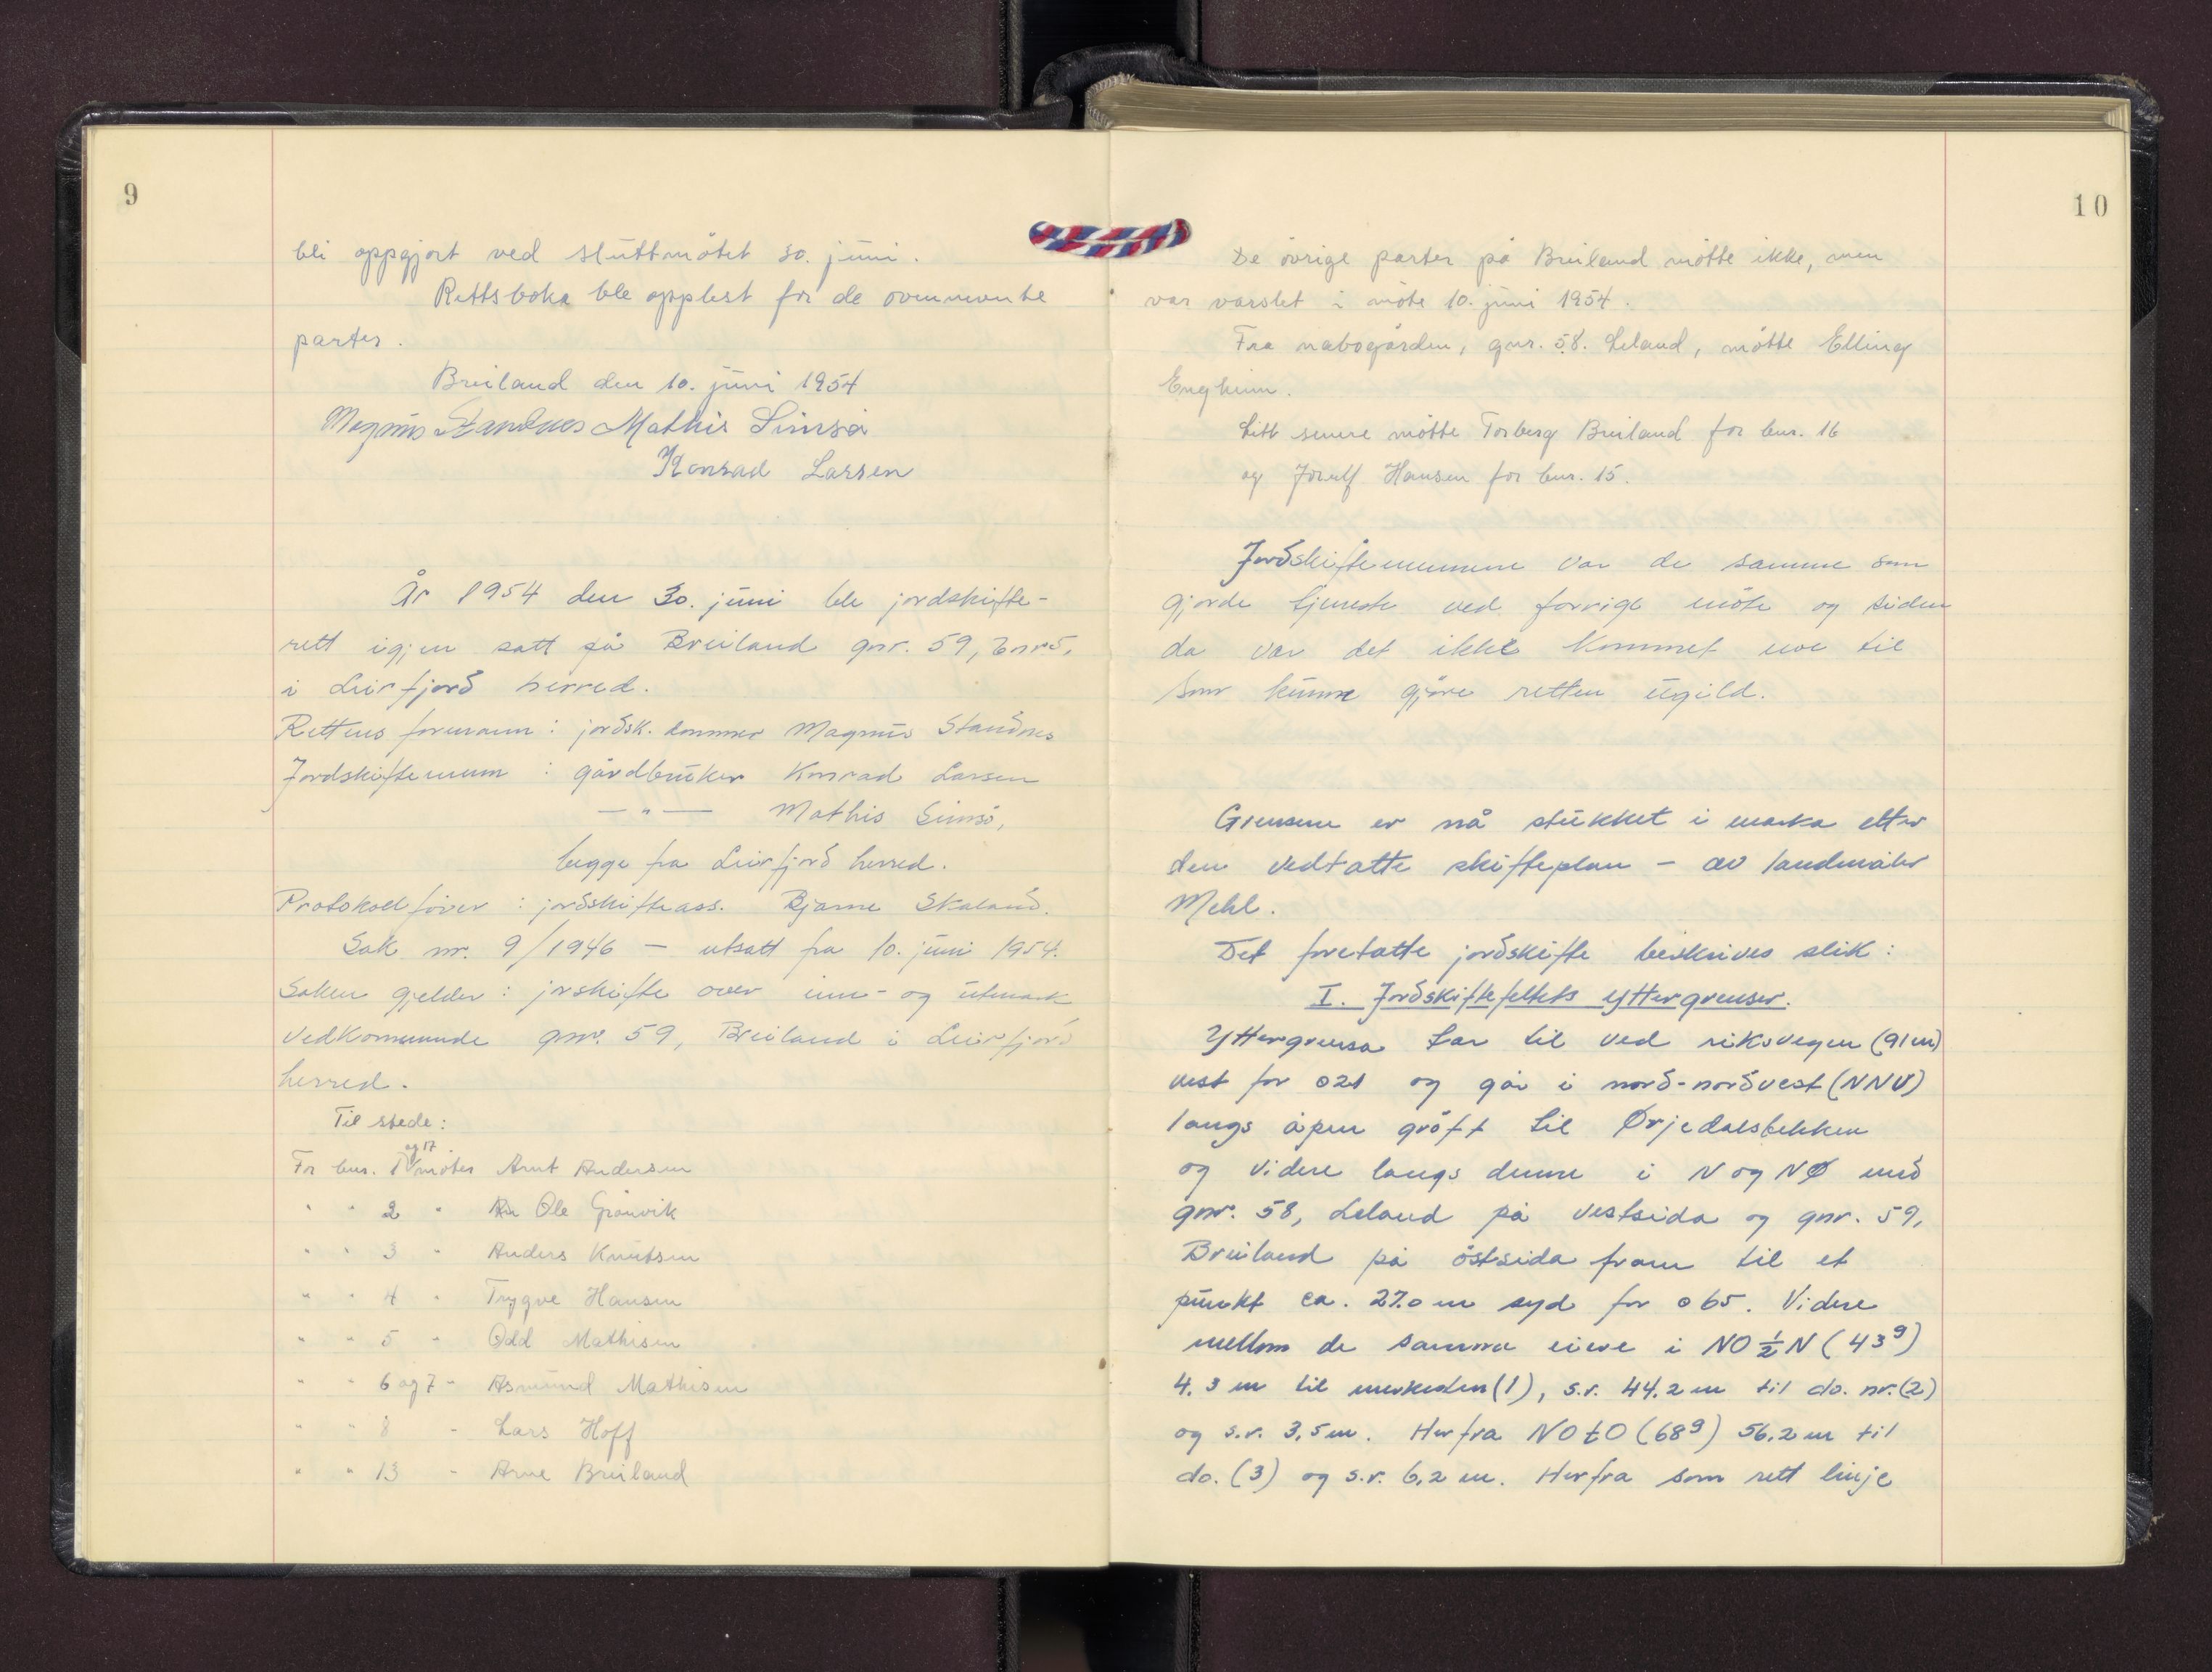 9
bli oppgjort ved sluttmötet 30. juni.
Rettsboka ble opplest for de ovennevnte
parter.
Breiland den 10. juni 1954
Magnus Standnes Mathis Simsø
Konrad Larsen
År 1954 den 30. juni ble jordskifte-
rett igjen satt på Breiland gnr. 59, bnr 5,
i Leirfjord herred.
Rettens formann: jordsk. dommer Magnus Standnes
Jordskiftemenn : gårdbruker Konrad Larsen
— " — Mathis Simsö,
begge fra Leirfjord herred.
Protokollförer : jordskifteass. Bjarne Skaland.
Sak nr. 9/1946 — utsatt fra 10. juni 1954.
Saken gjelder: jrskifte over inn- og utmark
vedkommende gnr. 59, Breiland i Leirfjord
herred.
Til stede:
Fr bnr. 1 og 17 möter Arnt Andersen
" " 2 " Ole Grönvik
" " 3 " Anders Knutsen
" " 4 " Trygve Hansen
" " 5 " Odd Mathisen
" " 6 og 7 " Asmund Mathisen
" " 8 " Lars Hoff
" " 13 " Arne Breiland
10
De övrige parter på Breiland mötte ikke, men
var varslet i möte 10. juni 1954.
Fra nabogården, gnr. 58. Leland, mötte Elling
Engheim.
Litt senere mötte Torberg Breiland for bnr. 16
og Jorulf Hansen for bnr. 15.
Jordskiftemennene var de samme som
gjorde tjeneste ved forrige möte og siden
da var det ikke kommet noe til
som kunne gjöre retten ugild.
Grensene er nå stukket i marka etter
den vedtatte skifteplan – av landmåler
Mehl.
Det foretatte jordskifte beskrives slik:
I. Jordskiftefeltets yttergrenser.
Yttergrensa tar til ved riksvegen (91m)
vest for o21 og går i nord-nordvest (NNV)
langs åpen gröft til Ørjedalsbekken
og videre langs denne i N og NØ med
gnr. 58, Leland på vestsida og gnr. 59,
Breiland på östsida fram til et
punkt ca. 27.0 m syd for o65. Videre
mellom de samme eiere i NO ½ N (43g)
4.3 m til merkesten (1), s.r. 44.2 m til do. nr. (2)
og s.r. 3,5 m. Herfra NOtO (68g) 56,2 m til
do. (3) og s.r. 6,2 m. Herfra som rett linje